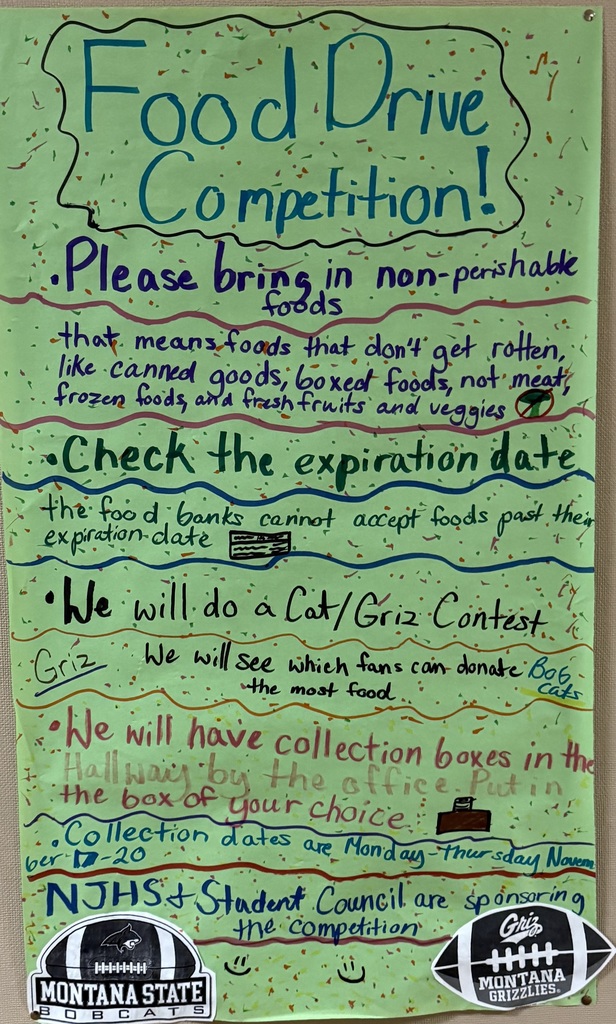 Food Drive
Competition!
• Please bring in non-perishable
foods
that means foods that don't get rotten,
like canned goods, boxed foods, not meat,
frozen foods, and fresh fruits and veggies
• Check the expiration date
the food banks cannot accept foods past their
expiration date
• We will do a Cat/Griz Contest
Griz We will see which fans can donate Bob
the most food cats
• We will have collection boxes in the
Hallway by the office. Put in
the box of your choice
• Collection dates are Monday-Thursday Novem
ber 17-20
NJHS & Student Council are sponsoring
the competition
MONTANA STATE
BOBCATS
Griz
MONTANA
GRIZZLIES